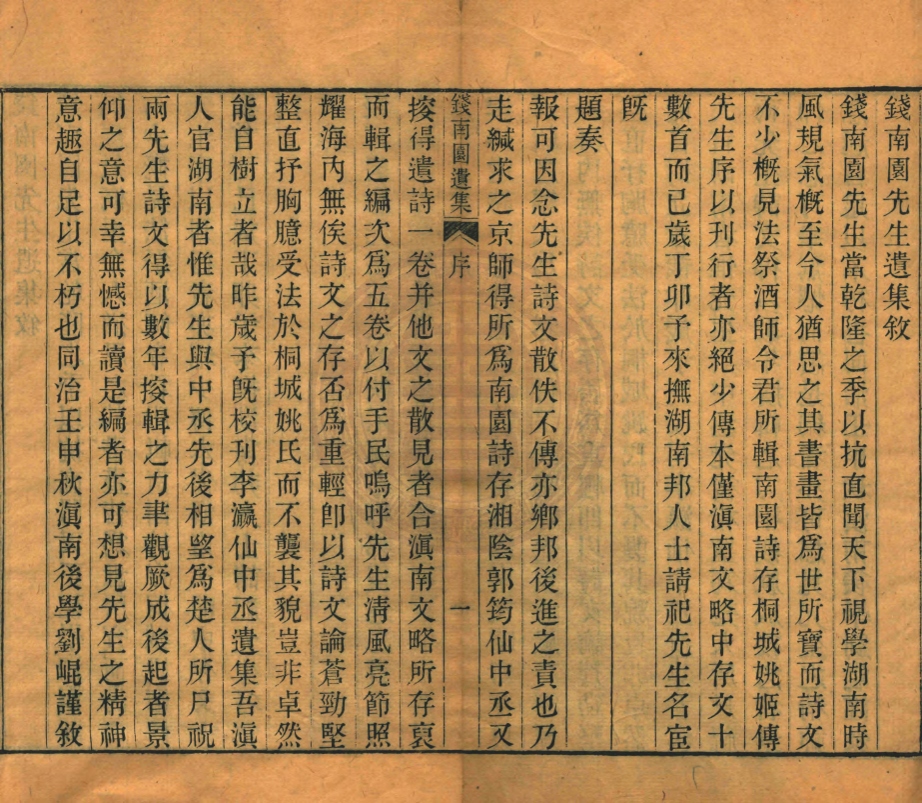 錢南園先生遺集敘
錢南園先生當乾隆之季以抗直聞天下視學湖南時
風規氣槪至今人猶思之其書畫皆爲世所寶而詩文
不少槪見法祭酒師令君所輯南園詩存桐城姚姬傳
先生序以刊行者亦絕少傳本僅滇南文略中存文十
數首而已歲丁卯予來撫湖南邦人士請祀先生名宦
旣
題奏
報可因念先生詩文散佚不傳亦鄉邦後進之責也乃
走緘求之京師得所爲南園詩存湘陰郭筠仙中丞又
錢南園遺集 序 一
搜得遺詩一卷并他文之散見者合滇南文略所存裒
而輯之編次爲五卷以付手民嗚呼先生淸風亮節照
耀海內無俟詩文之存否爲重輕卽以詩文論蒼勁堅
整直抒胸臆受法於桐城姚氏而不襲其貌豈非卓然
能自樹立者哉昨歲予旣校刊李瀛仙中丞遺集吾滇
人官湖南者惟先生與中丞先後相望爲楚人所尸祝
兩先生詩文得以數年搜輯之力聿觀厥成後起者景
仰之意可幸無憾而讀是編者亦可想見先生之精神
意趣自足以不朽也同治壬申秋滇南後學劉崐謹敘